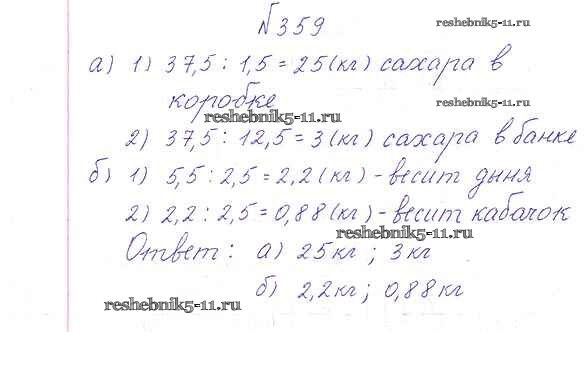 №359
reshebnik5-11.ru
а) 1) 37,5 : 1,5 = 25 (кг) сахара в
коробке
reshebnik5-11.ru
2) 37,5 : 12,5 = 3 (кг) сахара в банке
б) 1) 5,5 : 2,5 = 2,2 (кг) - весит дыня
2) 2,2 : 2,5 = 0,88 (кг) - весит кабачок
reshebnik5-11.ru
Ответ: а) 25 кг ; 3 кг
б) 2,2 кг ; 0,88 кг
reshebnik5-11.ru